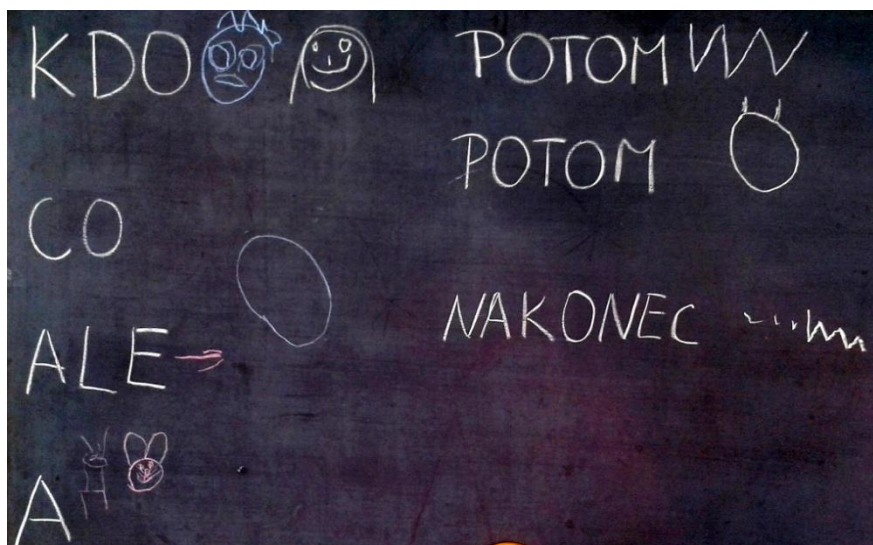 KDO
CO
ALE
A
POTOM
POTOM
NAKONEC